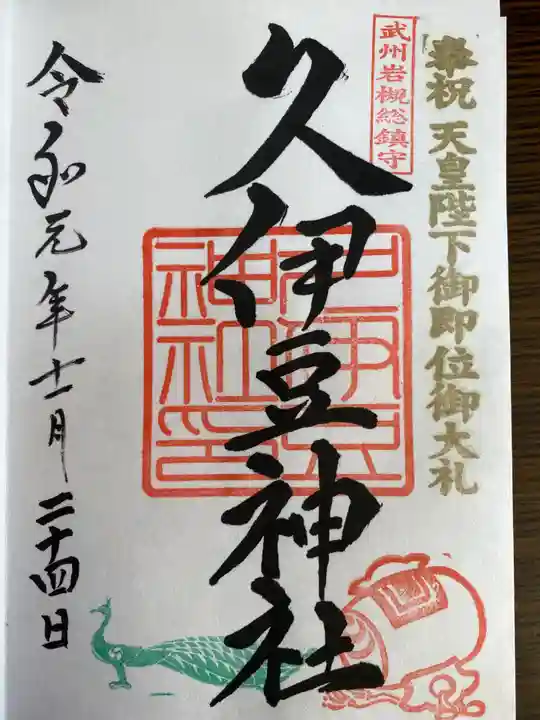 奉祝 天皇陛下御即位御大礼
武州岩槻総鎮守
久伊豆神社
令和元年十一月二十四日